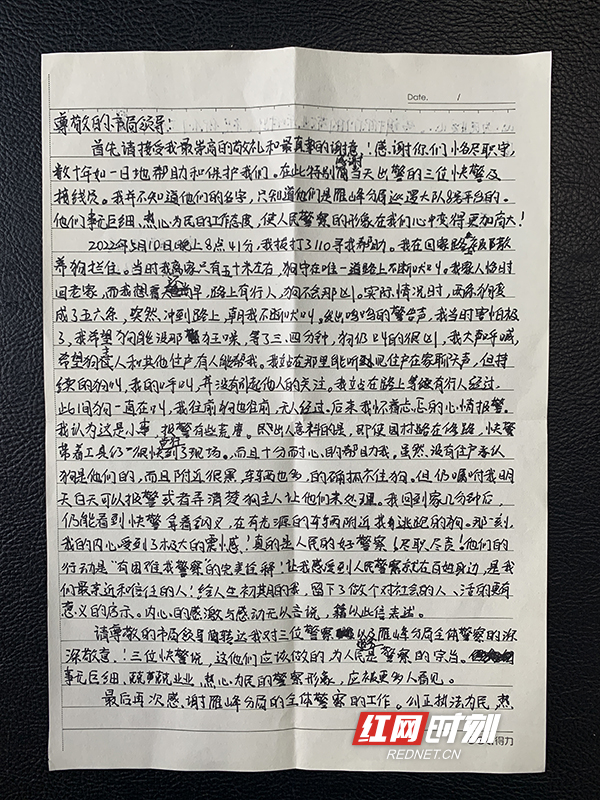 Date. /
尊敬的市局领导:
首先请接受我最崇高的敬礼和最真挚的谢意!感谢你们恪尽职守,
数十年如一日地帮助和保护我们。在此特别感谢当天出警的三位快警及
接线员。我并不知道他们的名字,只知道他们是雁峰分局巡逻大队8号平台的。
他们事无巨细、热心为民的工作态度,使人民警察的形象在我们心中变得更加高大!
2022年5月10日晚上8点41分,我拨打了110寻求帮助。我在回家路
养狗拦住。当时我离家只有五十米左右,狗守在唯一道路上不断吠叫。我家人恰时
回老家,而我想着天色尚早,路上有行人,狗不会那凶。实际情况时,两条狗变
成了五六条,突然,冲到路上,朝我不断吠叫。发出呜呜的警告声,我当时害怕极
了,我希望狗能没那警惕,等了三、四分钟,狗仍叫的很凶,我大声呼喊,
希望狗主人和其他住户有人能帮我。我站在那里能听到见住户在家聊天声,但持
续的狗叫,我的呼叫,并没有引起他人的关注。我站在路上等候有行人经过,
此间狗一直在叫,我往前狗也往前,无人经过。后来我怀着忐忑的心情报警。
我认为这是小事,报警有些麻烦。但出人意料的是,即使因村路在修路,快警
带着工具仍很快到了现场。而且十分耐心的帮助我。虽然,没有住户承认
狗是他们的,而且附近很黑,车辆也多,的确抓不住狗。但仍嘱咐我明
天白天可以报警或者弄清楚狗主人让他们来处理。我回到家几分钟后,
仍能看到快警拿着钢叉,在有光源的车辆附近找有逃跑的狗。那一刻,
我的内心受到了极大的震撼!真的是人民的好警察!尽职尽责!他们的
行动是"有困难找警察"的完美诠释!让我感受到人民警察就在百姓身边,是我
们最亲近和信任的人!给人生初期的我,留下了做个对社会的人、活的更有
意义的启示。内心的感激与感动无以言说,藉以此信表述。
请尊敬的市局领导能转达我对三位警察以及雁峰分局全体警察的深
深敬意!三位快警说,这他们应该做的,为人民是警察的宗旨。
事无巨细、兢兢业业,热心为民的警察形象,应被更多人看见。
最后再次感谢雁峰分局的全体警察的工作。公正执法为民,热
红网时刻
REDNET.CN
得力